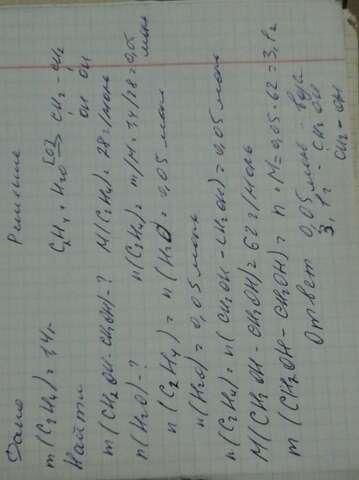 Дано Решение
m(C2H4) = 1,4 г C2H4 + H2O [O] → CH2 - CH2
Найти OH OH
m(CH2OH-CH2OH)-? M(C2H4) = 28 г/моль
n(H2O)-? n(C2H4) = m/M = 1,4/28 = 0,05 моль
n(C2H4) = n(H2O) = 0,05 моль
n(H2O) = 0,05 моль
n(C2H4) = n(CH2OH-CH2OH) = 0,05 моль
M(CH2OH-CH2OH) = 62 г/моль
m(CH2OH-CH2OH) = n · M = 0,05·62 = 3,1 г
Ответ 0,05 моль - вода
3,1 г - CH2OH
CH2-OH